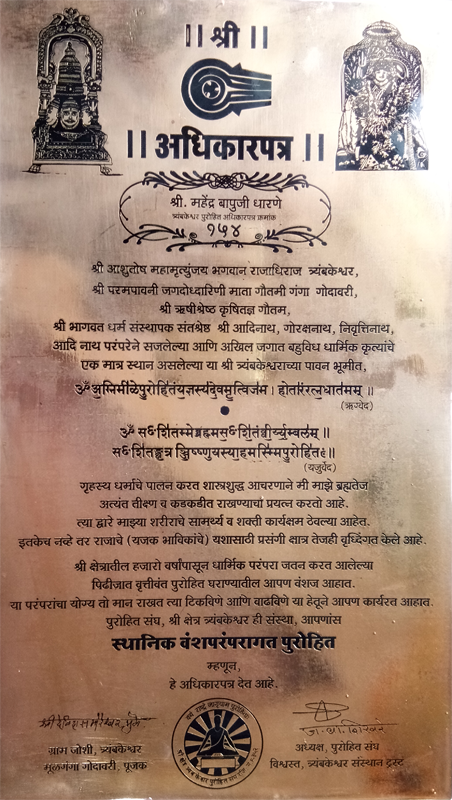 || श्री ||
|| अधिकारपत्र ||
श्री. महेंद्र बापुजी धारणे
त्र्यंबकेश्वर पुरोहित अधिकारपत्र क्रमांक
१५४
श्री आशुतोष महामृत्युंजय भगवान राजाधिराज त्र्यंबकेश्वर,
श्री परमपावनी जगदोध्दारिणी माता गौतमी गंगा गोदावरी,
श्री ऋषीश्रेष्ठ कृषितज्ञ गौतम,
श्री भागवत धर्म संस्थापक संतश्रेष्ठ श्री आदिनाथ, गोरक्षनाथ, निवृत्तिनाथ,
आदि नाथ परंपरेने सजलेल्या आणि अखिल जगात बहुविध धार्मिक कृत्यांचे
एक मात्र स्थान असलेल्या या श्री त्र्यंबकेश्वराच्या पावन भूमीत,
ॐ अग्निमीळे पुरोहितं यज्ञस्य देवमृत्विजम। होतारं रत्नधातमम् ॥
(ऋग्वेद)
(यजुर्वेद)
गृहस्थ धर्माचे पालन करत शास्त्रशुद्ध आचरणाने मी माझे ब्रह्मतेज
अत्यंत तीक्ष्ण व कडकडीत राखण्याचा प्रयत्न करतो आहे.
त्या द्वारे माझ्या शरीराचे सामर्थ्य व शक्ती कार्यक्षम ठेवल्या आहेत.
इतकेच नव्हे तर राजाचे (यजक भाविकांचे) यशासाठी प्रसंगी क्षात्र तेजही वृध्दिंगत केले आहे.
श्री क्षेत्रातील हजारो वर्षांपासून धार्मिक परंपरा जतन करत आलेल्या
पिढीजात वृत्तीवंत पुरोहित घराण्यातील आपण वंशज आहात.
या परंपरांचा योग्य तो मान राखत त्या टिकविणे आणि वाढविणे या हेतूने आपण कार्यरत आहात.
पुरोहित संघ, श्री क्षेत्र त्र्यंबकेश्वर ही संस्था, आपणांस
स्थानिक वंशपरंपरागत पुरोहित
म्हणून,
हे अधिकारपत्र देत आहे.
ग्राम जोशी, त्र्यंबकेश्वर
मूळगंगा गोदावरी, पूजक
अध्यक्ष, पुरोहित संघ
विश्वस्त, त्र्यंबकेश्वर संस्थान ट्रस्ट